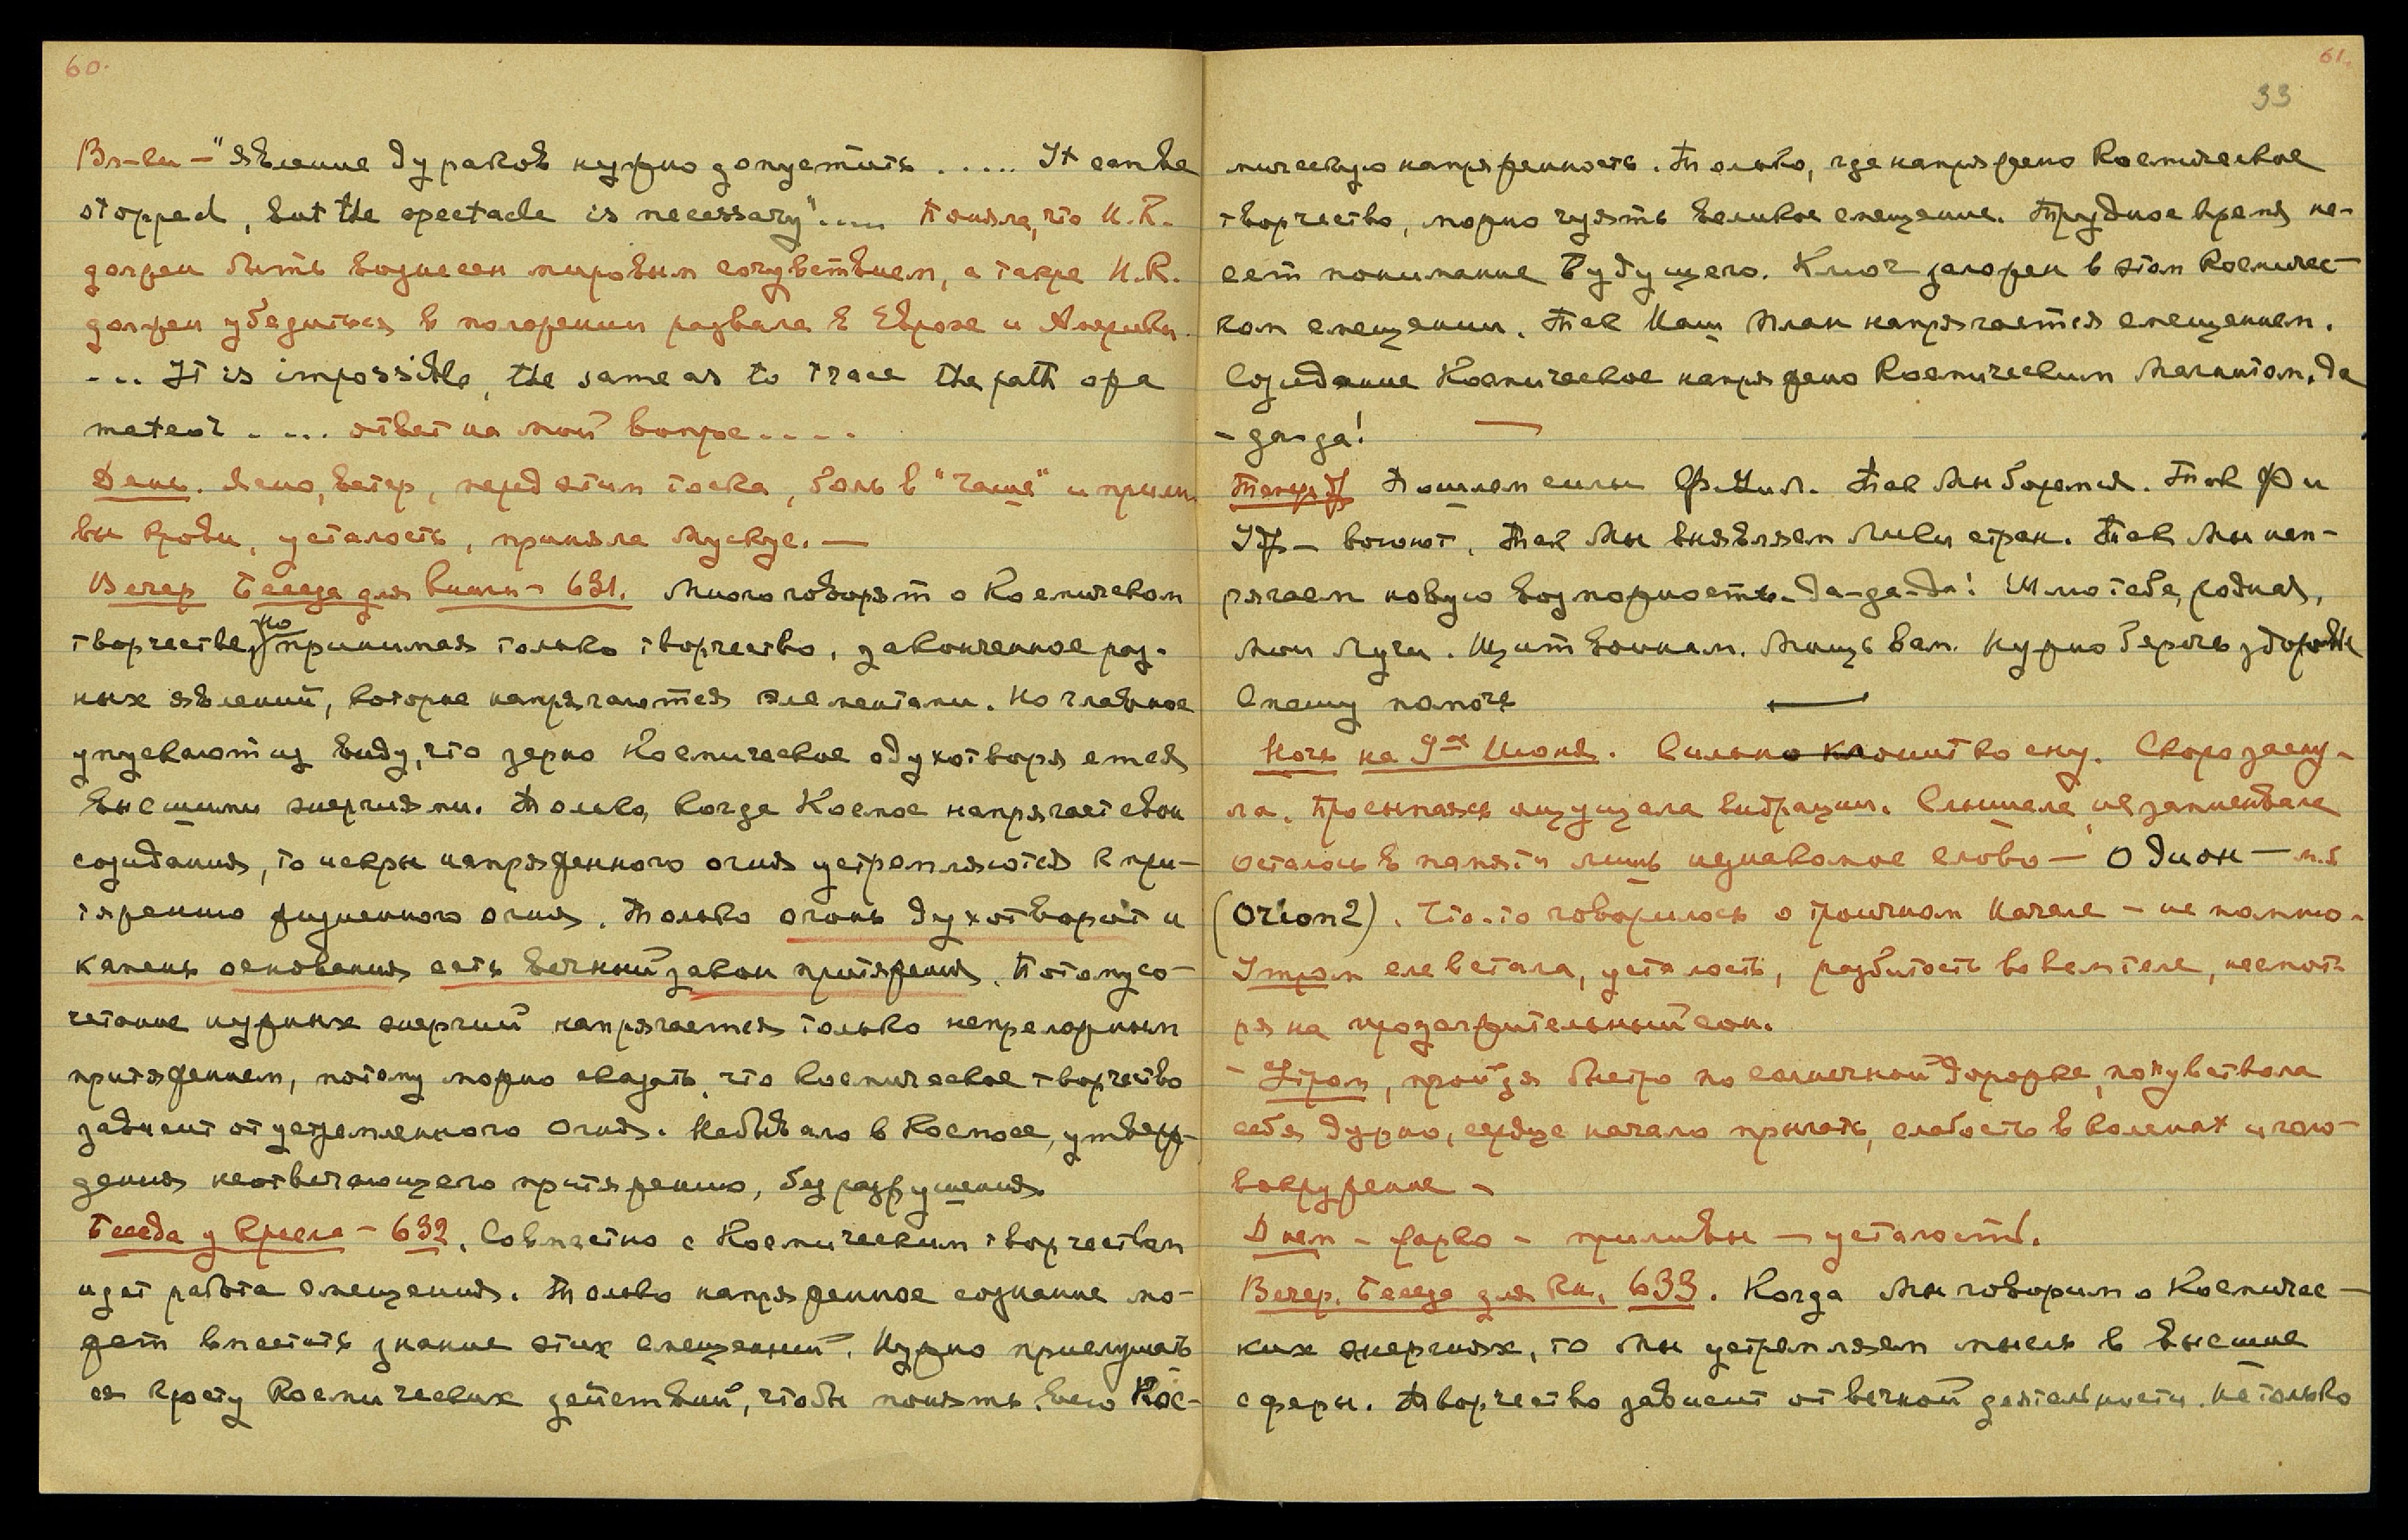 60.
Вл-ки – "Явление дураков нужно допустить ..... It can be
stopped, but the spectacle is necessary".... Поняла, что Н.К.
должен быть вознесен мировым сочувствием, а также Н.К.
должен убедиться в положении развала в Европе и Америки.
... It is impossible, the same as to trace the path of a
meteor ..... ответ на мой вопрос ....
День. Ясно, ветер, перед этим тоска, боль в "чаше" и прили-
вы крови, усталость, приняла мускус. —
Вечер Беседа для книги – 631. Много говорят о Космическом
творчестве, но принимая только творчество, законченное раз-
ных явлений, которые напрягаются элементами. Но главное
упускают из виду, что зерно Космическое одухотворяется
высшими энергиями. Только, когда Космос напрягает свои
созидания, то искры напряженного огня устремляются к при-
тяжению жизненного огня. Только огонь духотворит и
камень основания есть вечный закон притяжения. Потому со-
четание нужных энергий напрягается только непреложным
притяжением, потому можно сказать, что космическое творчество
зависит от устремленного огня. Не бывало в Космосе, утверж-
дения неотвечающего притяжению, без разрушения
Беседа у кресла – 632. Совместно с Космическим творчеством
идет работа смещения. Только напряженное сознание мо-
жет вместить знание этих смещений. Нужно прислушать
ся к росту Космических действий, чтобы понять всю Кос-
61.
33
мическую напряженность. Только, где напряжено Космическое
творчество, можно чуять великое смещение. Трудное время не-
сет понимание Будущего. Ключ заложен в этом Космичес-
ком смещении. Так Наш План напрягается смещением.
Созидание Космическое напряжено Космическим Магнитом. Да
- да-да!
Пошлем силы Ф. Так Мы боремся. Так Ф и
воюют. Так Мы выявляем Лики стран. Так Мы нап-
рягаем новую возможность. Да-да-да! Шлю тебе, родная,
Мои Лучи. Щит воинам. Мощь вам. Нужно беречь здоровье
Спешу помочь
Ночь на 9ое Июня. Сильно клонит ко сну. Скоро засну-
ла. Просыпаясь ощущала вибрации. Слышала, не записывала
осталось в памяти лишь незнакомое слово — Одион — м.б
(Orion?). Что-то говорилось о троичном Начале – не помню.
Утром еле встала, усталость, разбитость во всем теле, несмот-
ря на продолжительный сон.
- Утром, пройдя быстро по солнечной дорожке, почувствовала
себя дурно, сердце начало прыгать, слабость в коленах и голо-
вокружение –
Днем – жарко – приливы — усталость.
Вечер. Беседа для Кн. 633. Когда Мы говорим о Космичес-
ких энергиях, то Мы устремляем мысль в высшие
сферы. Творчество зависит от вечной деятельности. Не только